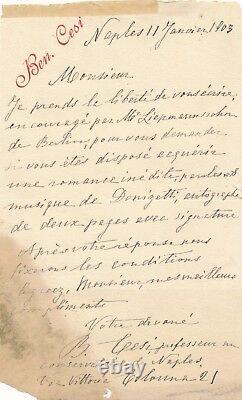 Ben. Cesi
Naples 11 Janvier 1903
Monsieur
Je prends la liberté de vous écrire
encouragé par Mr Liepmannssohn
de Berlin, pour vous demander
si vous êtes disposé acquérir
une romance inédite, paroles et
musique de Donizetti, autographe
de deux pages avec signature
Après votre réponse nous
fixerons les conditions
Agréez Monsieur, mes meilleurs
compliments
Votre dévoué
B. Cesi, professeur au
conservatoire de Naples.
Via Vittoria Colonna 21